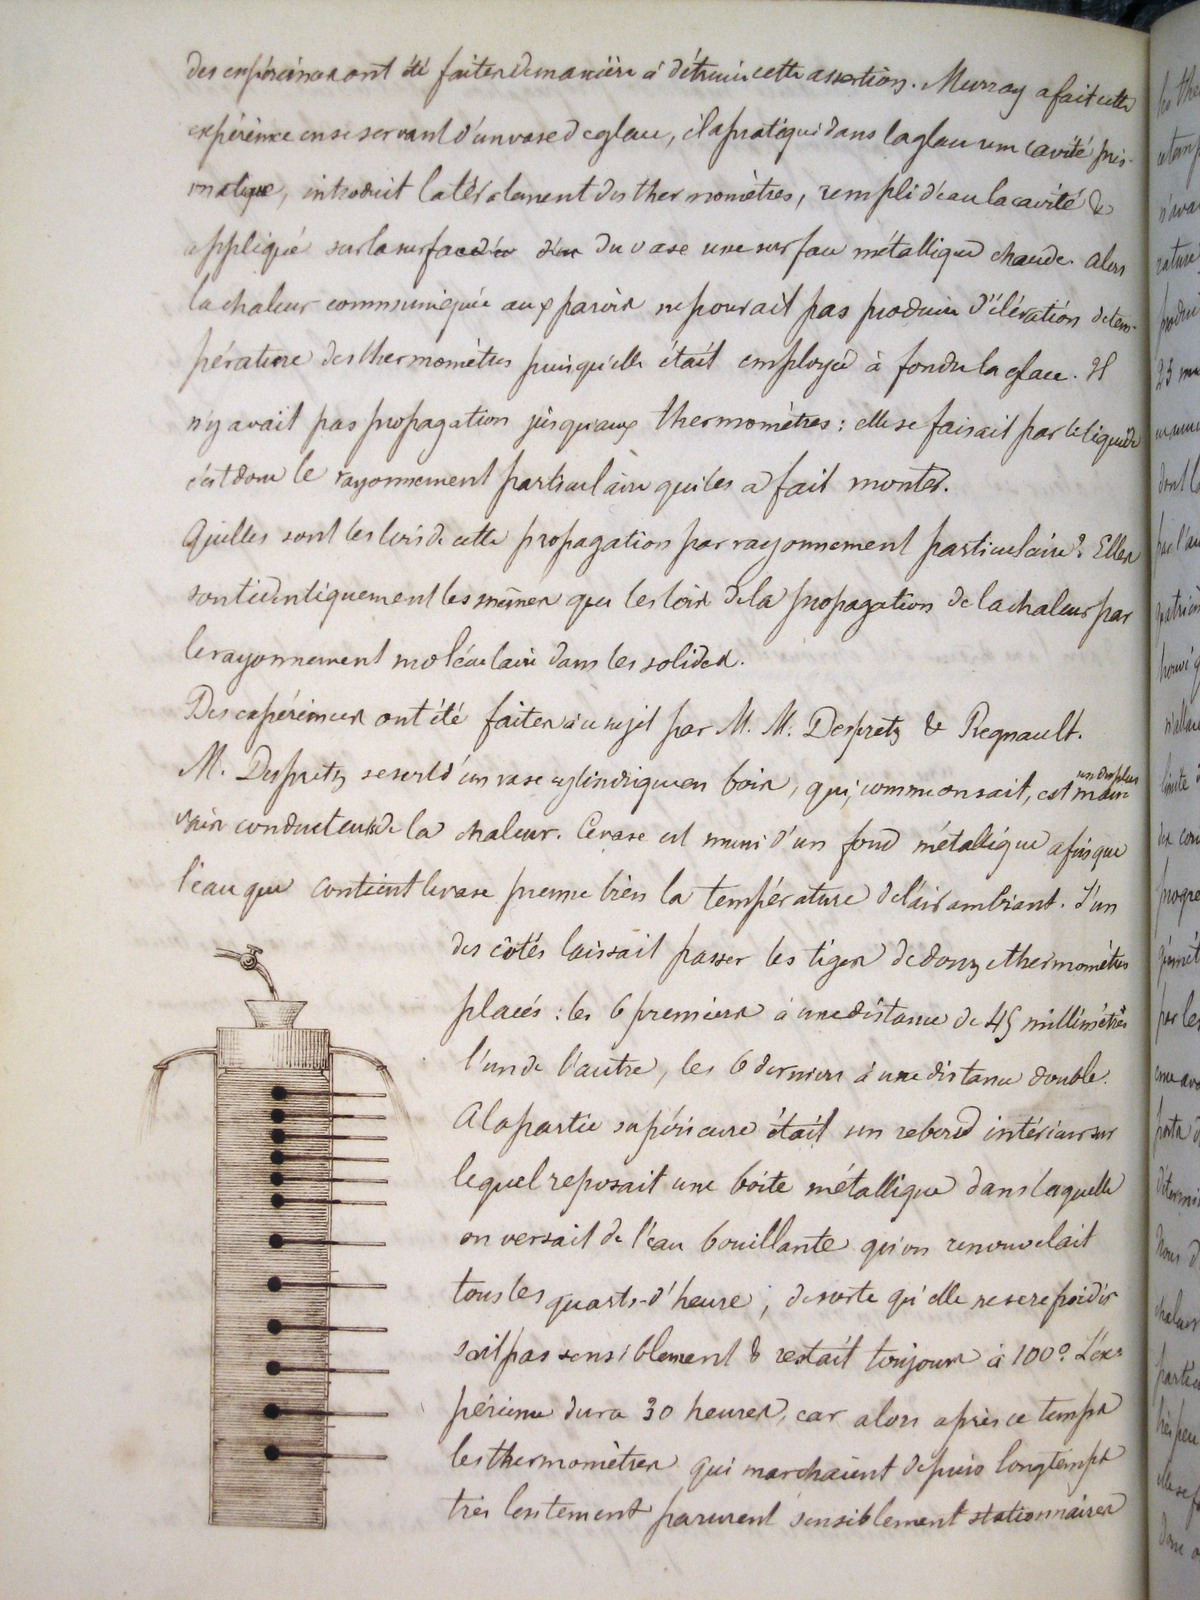 des expériences ont été faites de manière à détruire cette assertion. Murray a fait cette
expérience en se servant d'un vase de glace, il a pratiqué dans la glace une cavité pris-
matique, introduit latéralement des thermomètres, rempli d'eau la cavité &
appliqué sur la surface du vase une surface métallique chaude. Alors
la chaleur communiquée aux parois ne pourait pas produire d'élévation de tem-
pérature des thermomètres puisqu'elle était employée à fondre la glace. Il
n'y avait pas propagation jusqu'aux thermomètres : elle se faisait par le liquide
c'est donc le rayonnement particulaire qui les a fait monter.
Quelles sont les lois de cette propagation par rayonnement particulaire ? Elles
sont identiquement les mêmes que les lois de la propagation de la chaleur par
le rayonnement moléculaire dans les solides.
Des expériences ont été faites à ce sujet par M. M. Despretz & Regnault.
M. Despretz se sert d'un vase cylindrique en bois, qui, comme on sait, est un des plus mau-
vais conducteurs de la chaleur. Ce vase est muni d'un fond métallique afin que
l'eau que contient le vase prenne bien la température de l'air ambiant. L'un
des côtés laissait passer les tiges de douze thermomètres
placés : les 6 premiers à une distance de 45 millimètres
l'un de l'autre, les 6 derniers à une distance double.
A la partie supérieure était un rebord intérieur sur
lequel reposait une boîte métallique dans laquelle
on versait de l'eau bouillante qu'on renouvelait
tous les quarts-d'heure, de sorte qu'elle ne se refroidis
sait pas sensiblement & restait toujours à 100°. L'ex-
périence dura 30 heures, car alors après ce temps
les thermomètres qui marchaient depuis longtemps
très lentement parurent sensiblement stationnaires